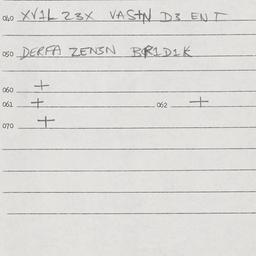 040 XV1L 23X VASTN D3 ENT
050 DERFA ZEN3N BR1D1K
060 +
061 + 062 +
070 +